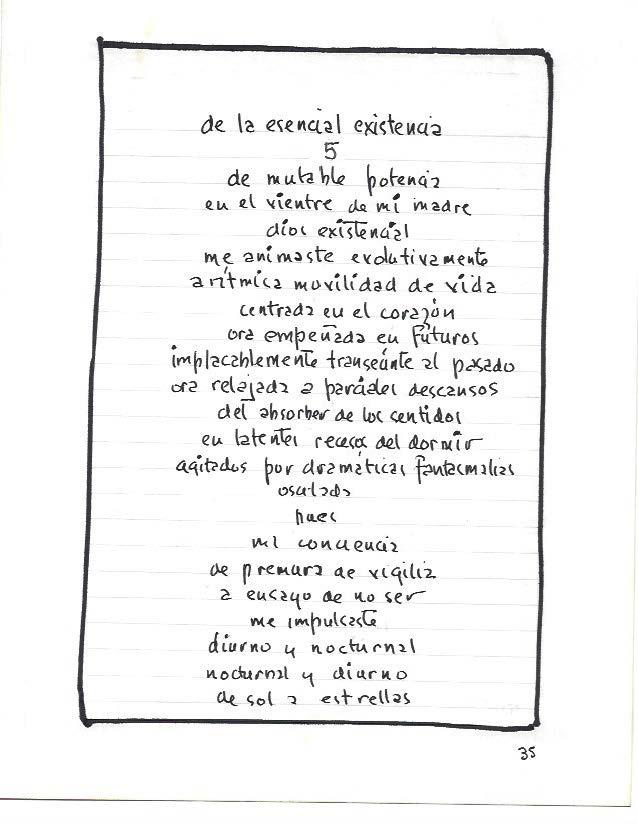 de la esencial existencia
5
de mutable potencia
en el vientre de mi madre
dios existencial
me animaste evolutivamente
arítmica movilidad de vida
centrada en el corazón
ora empeñada en futuros
implacablemente transeúnte al pasado
ora relajada a parciales descansos
del absorber de los sentidos
en latentes recesos del dormir
agitados por dramáticas fantasmalias
oscilada
pues
mi conciencia
de premura de vigilia
a ensayo de no ser
me impulsaste
diurno y nocturnal
nocturnal y diurno
de sol a estrellas
35